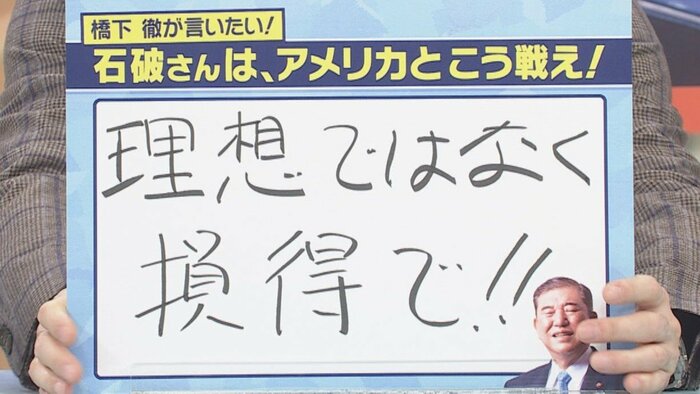 橋下 徹が言いたい！
石破さんは、アメリカとこう戦え！
理想ではなく
損得で！！